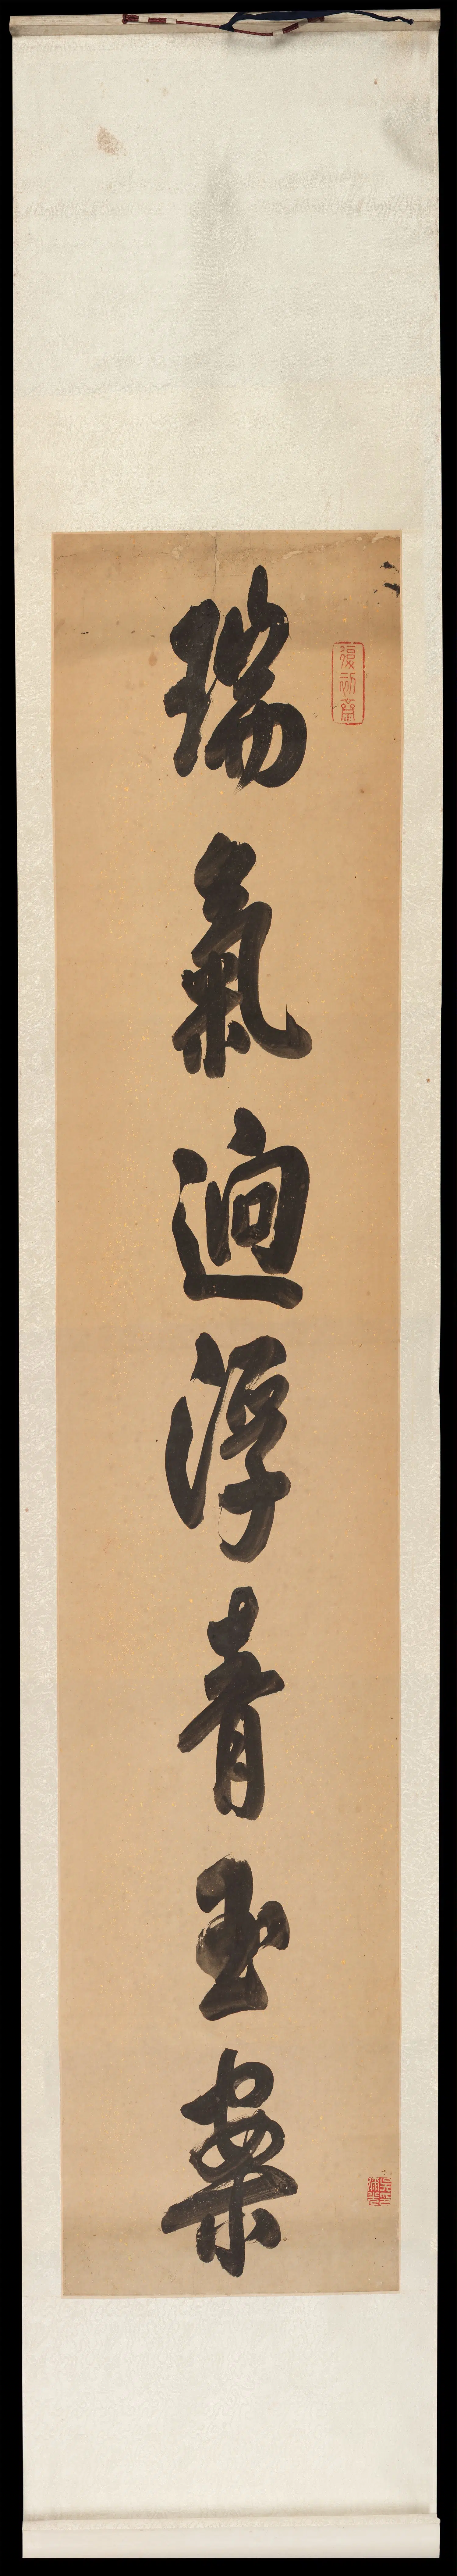 瑞氣迥浮青玉案
復初齋